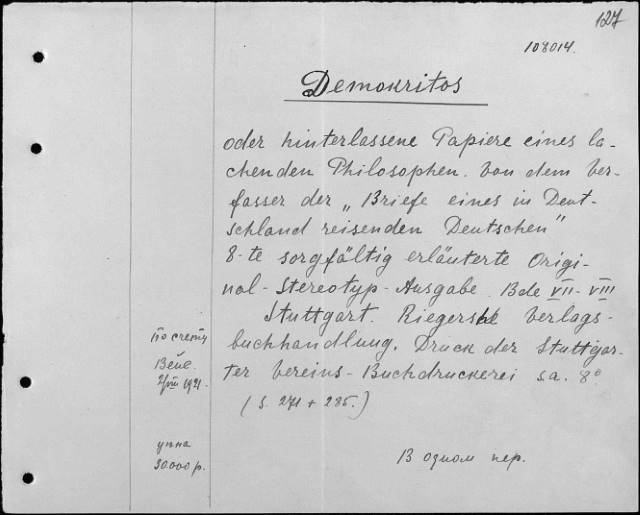 127
108014.
Demokritos
oder hinterlassene Papiere eines la-
chenden Philosophen. Von dem Ver-
fasser der „Briefe eines in Deut-
schland reisenden Deutschen"
8-te sorgfältig erläuterte Origi-
nal-Stereotyp-Ausgabe. Bde VII-VIII
Stuttgart. Riegersche Verlags-
buchhandlung. Druck der Stuttgar-
ter Vereins-Buchdruckerei s.a. 8°
(S. 271 + 285.)
По счету
2/VIII 1921.
30000 р.
В одном пер.